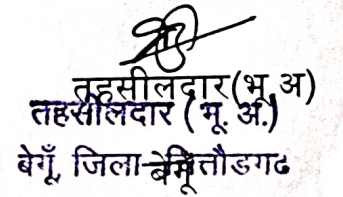 तहसीलदार(भू.अ)
तहसीलदार ( भू. अ.)
बेगूँ, जिला-चित्तौडगढ
बेगूँ